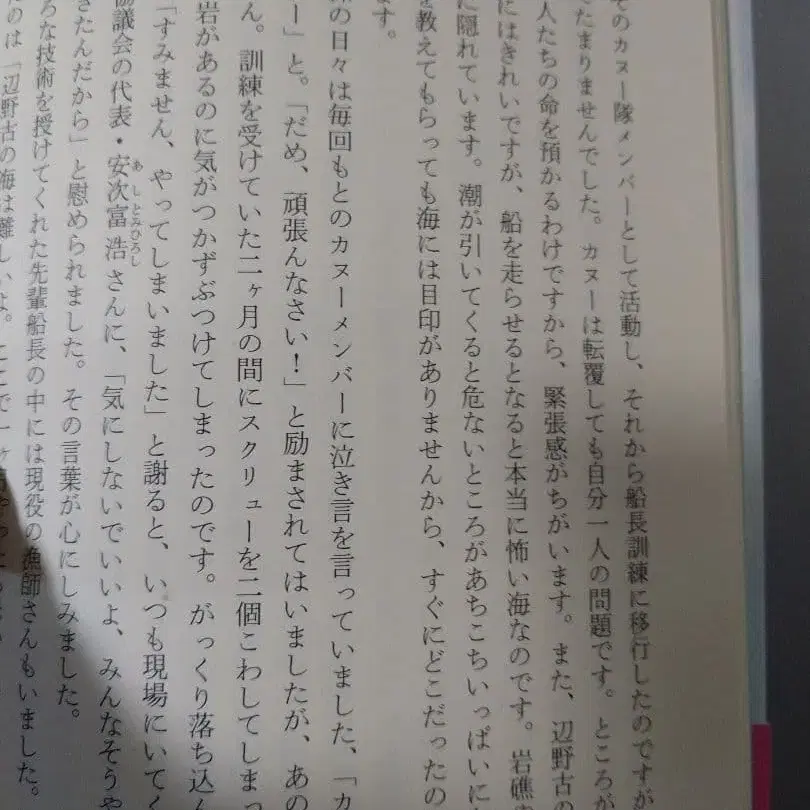 そのカヌー隊メンバーとして活動し、それから船長訓練に移行したのですが
てたまりませんでした。カヌーは転覆しても自分一人の問題です。ところが
人たちの命を預かるわけですから、緊張感がちがいます。また、辺野古の
にはきれいですが、船を走らせるとなると本当に怖い海なのです。岩礁
に隠れています。潮が引いてくると危ないところがあちこちいっぱいに
を教えてもらっても海には目印がありませんから、すぐにどこだったの
ます。
の日々は毎回もとのカヌーメンバーに泣き言を言っていました、「カ
ー」と。「だめ、頑張んなさい！」と励まされてはいましたが、あの
ん。訓練を受けていた二ヶ月の間にスクリューを二個こわしてしまっ
岩があるのに気がつかずぶつけてしまったのです。がっくり落ち込ん
「すみません、やってしまいました」と謝ると、いつも現場にいてく
協議会の代表・安次富浩さんに、「気にしないでいいよ、みんなそうや
あしとみひろし
きたんだから」と慰められました。その言葉が心にしみました。
ろな技術を授けてくれた先輩船長の中には現役の漁師さんもいました。
のは「辺野古の海は難しいよ。ここで一ヶ